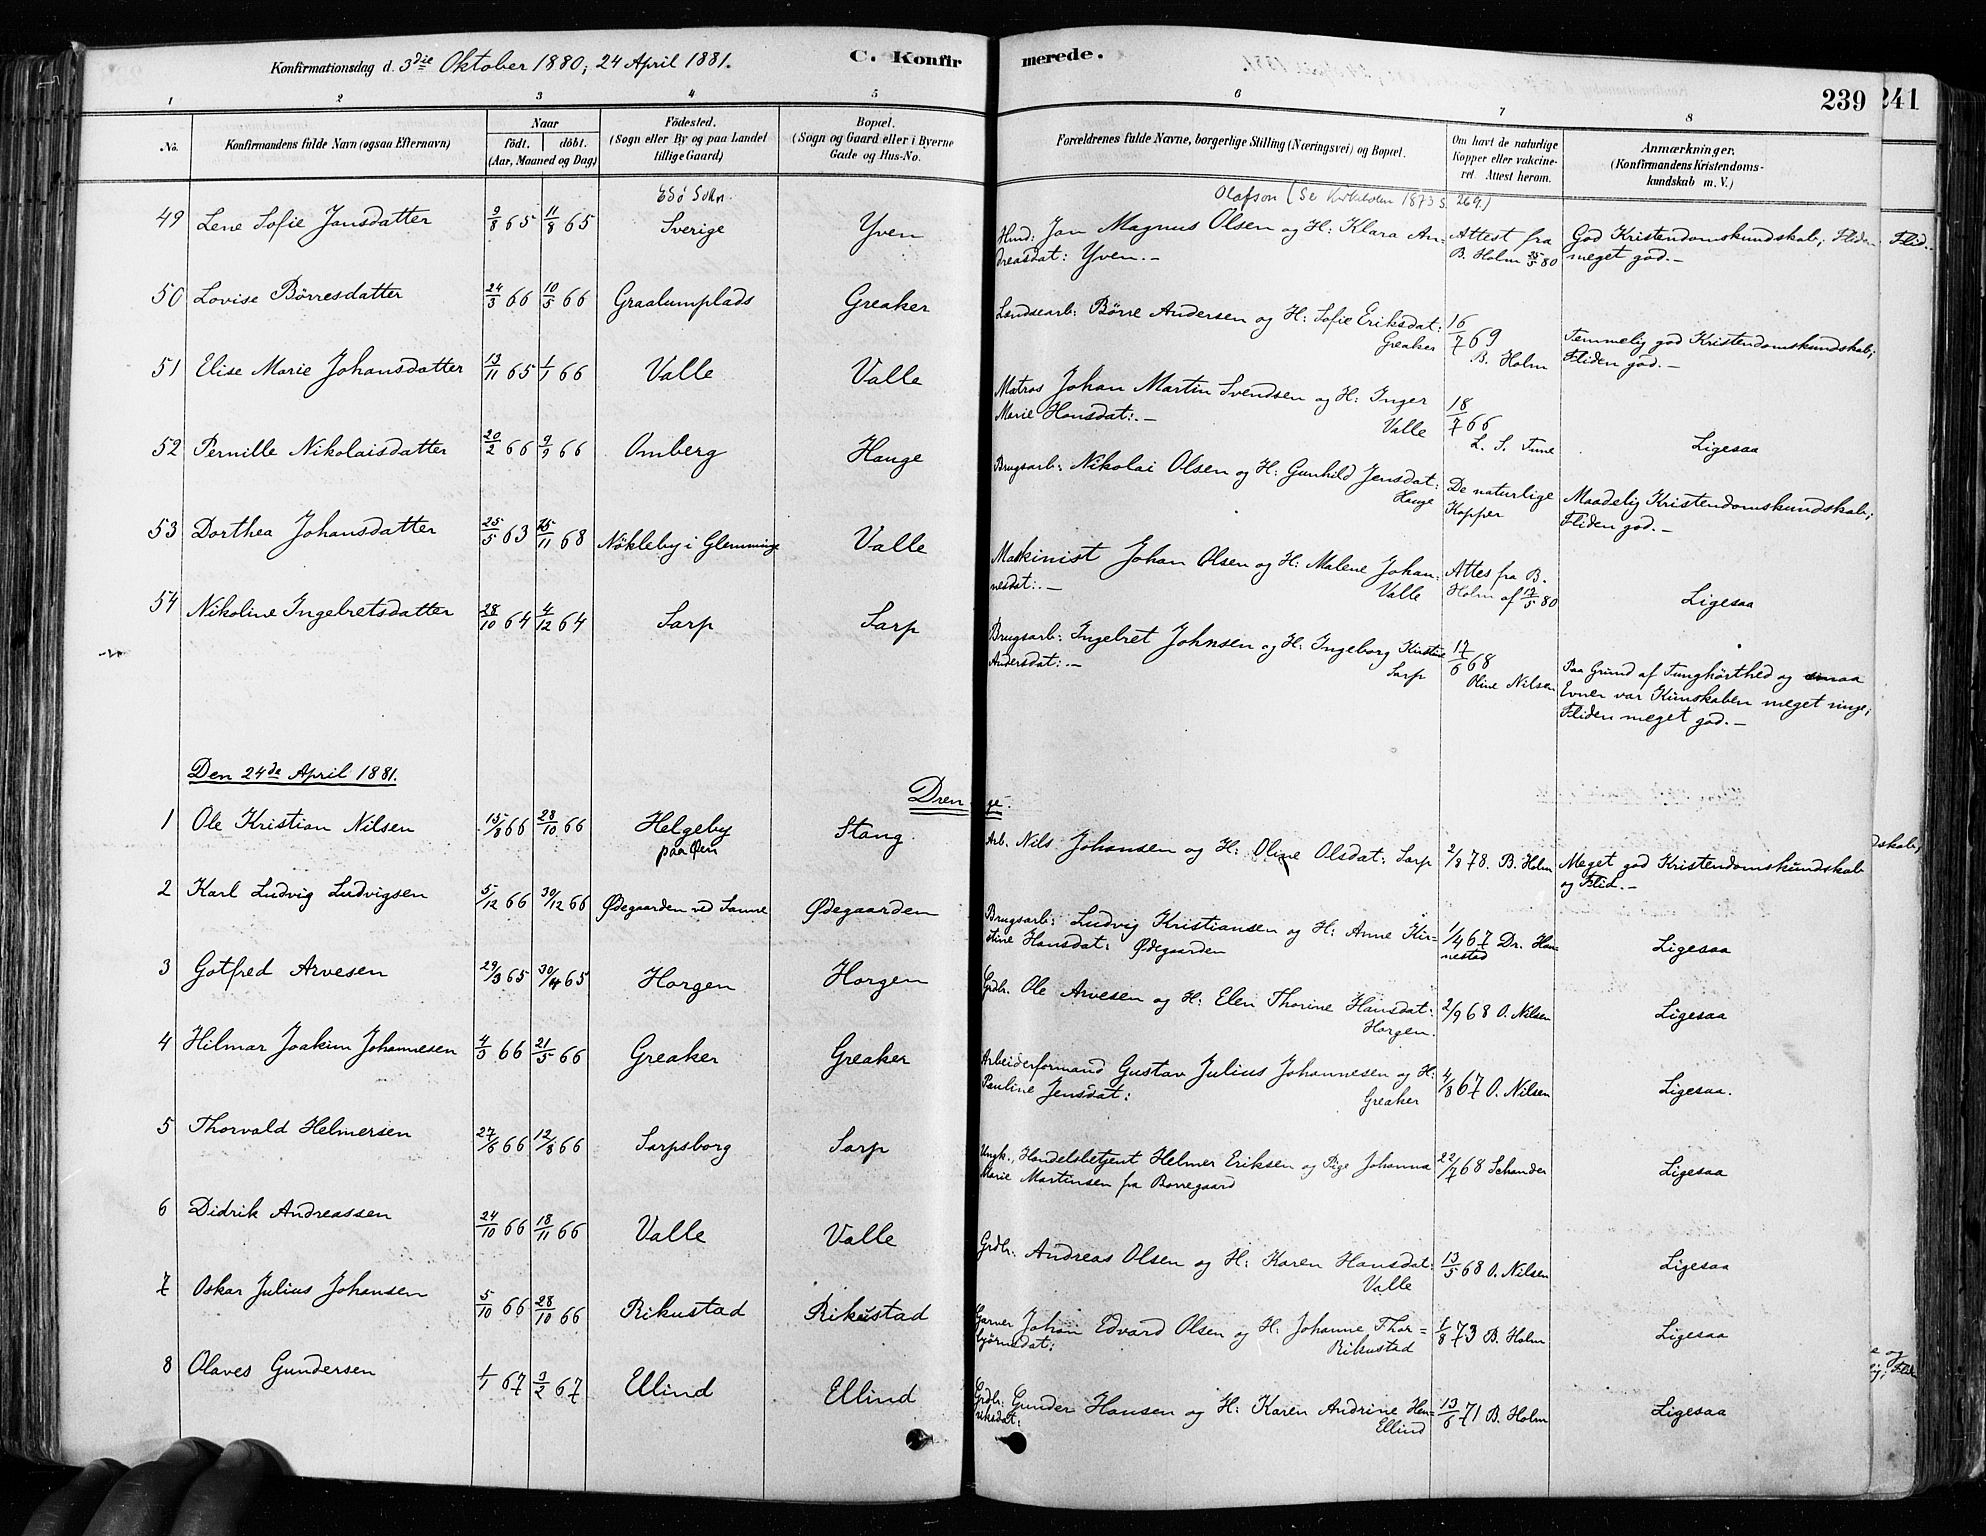 Konfirmationsdag d. 3die Oktober 1880, 24 April 1881. C. Konfirmerede. 239 241
1 2 3 4 5 6 7 8
No. Konfirmandens fulde Navn (ogsaa Efternavn) Naar født. døbt. (Aar, Maaned og Dag) Fødested. (Sogn eller By og paa Landet tillige Gaard) Bopæl. (Sogn og Gaard eller i Byerne Gade og Hus-No. Forældrenes fulde Navne, borgerlige Stilling (Næringsvei) og Bopæl. Om havt de naturlige Kopper eller vakcineret. Attest herom. Anmærkninger, (Konfirmandens Kristendomskundskab m. V.)
Olafson (Se Kirkeboken 1873 s. 269.)
49 Lene Sofie Jansdatter 9/8 65 11/8 65 Sverige Yven Jan Magnus Olsen og H: Klara Andreasdat: Yven.- Attest fra B. Holm 25/5 80 God Kristendomskundskab; Fliden meget god.-
Flid.-
50 Lovise Börresdatter 24/3 66 10/5 66 Graalumplads Greaker Landsearb: Børre Andersen og H: Sofie Eriksdat: Greaker 16/7 69 B. Holm Temmelig god Kristendomskundskab; Fliden god.-
51 Elise Marie Johansdatter 13/11 65 1/1 66 Valle Valle Matros Johan Martin Svendsen og H: Inger Marie Hansdat:.- Valle 18/7 66 L. S. Tune Ligesaa
52 Pernille Nikolaisdatter 20/2 66 9/9 66 Omberg Hauge Brugsarb: Nikolai Olsen og H: Gunhild Jensdat: Hauge De naturlige Kopper Maadelig Kristendomskundskab; Fliden god.-
53 Dorthea Johansdatter 25/5 63 15/11 68 Nökleby i Glemminge Valle Maskinist Johan Olsen og H: Malene Johannesdat:.- Valle Attes fra B. Holm af 17/5 80 Ligesaa
54 Nikoline Ingebretsdatter 28/10 64 4/12 64 Sarp Sarp Brugsarb: Ingebret Johnsen og H: Ingeborg Kirstine Andersdat:.- Sarp 17/6 68 Oline Nilsen Paa Grund af Tunghörthed og smaa Evner var Kunskaben meget ringe; Fliden meget god.-
Den 24de April 1881.
Drenge.
1 Ole Kristian Nilsen 15/8 66 28/10 66 Helgeby paa Øen Stang. Arb. Nils Johansen og H: Oline Olsdat: Sarp 2/8 78. B. Holm Meget god Kristendomskundskab og Flid.-
2 Karl Ludvig Ludvigsen 5/12 66 30/12 66 Ødegaarden ved Sanne Ødegaarden Brugsarb: Ludvig Kristiansen og H: Anne Kirstine Hansdat: Ødegaarden 1/4 67 Dr. Hannestad Ligesaa
3 Gotfred Arvesen 29/3 65 30/4 65 Horgen Horgen Grdbr. Ole Arvesen og H: Elen Thorine Hansdat: Horgen. 2/9 68 O. Nilsen Ligesaa
4 Hilmar Joakim Johannesen 4/3 66 21/5 66 Greaker Greaker Arbeiderformand Gustav Julius Johannesen og H: Pauline Jensdat: Greaker 4/8 67 O. Nilsen Ligesaa.
5 Thorvald Helmersen 27/6 66 12/8 66 Sarpsborg Sarp Ungk., Handelsbetjent Helmer Eriksen og Pige Johanna Marie Martinsen fra Borregaard 22/7 68 Schander Ligesaa
6 Didrik Andreassen 24/10 66 18/11 66 Valle Valle Grdbr. Andreas Olsen og H: Karen Hansdat: Valle 13/5 68 O. Nilsen Ligesaa
7 Oskar Julius Johansen 5/10 66 28/10 66 Rikustad Rikustad Garver Johan Edvard Olsen og H: Johanne Thorbjörnsdat: Rikustad 1/8 73 B. Holm Ligesaa
8 Olaves Gundersen 1/1 67 3/2 67 Ellind Ellind Grdbr: Gunder Hansen og H: Karen Andrine Henriksdat: Ellind 13/6 71 B. Holm Ligesaa